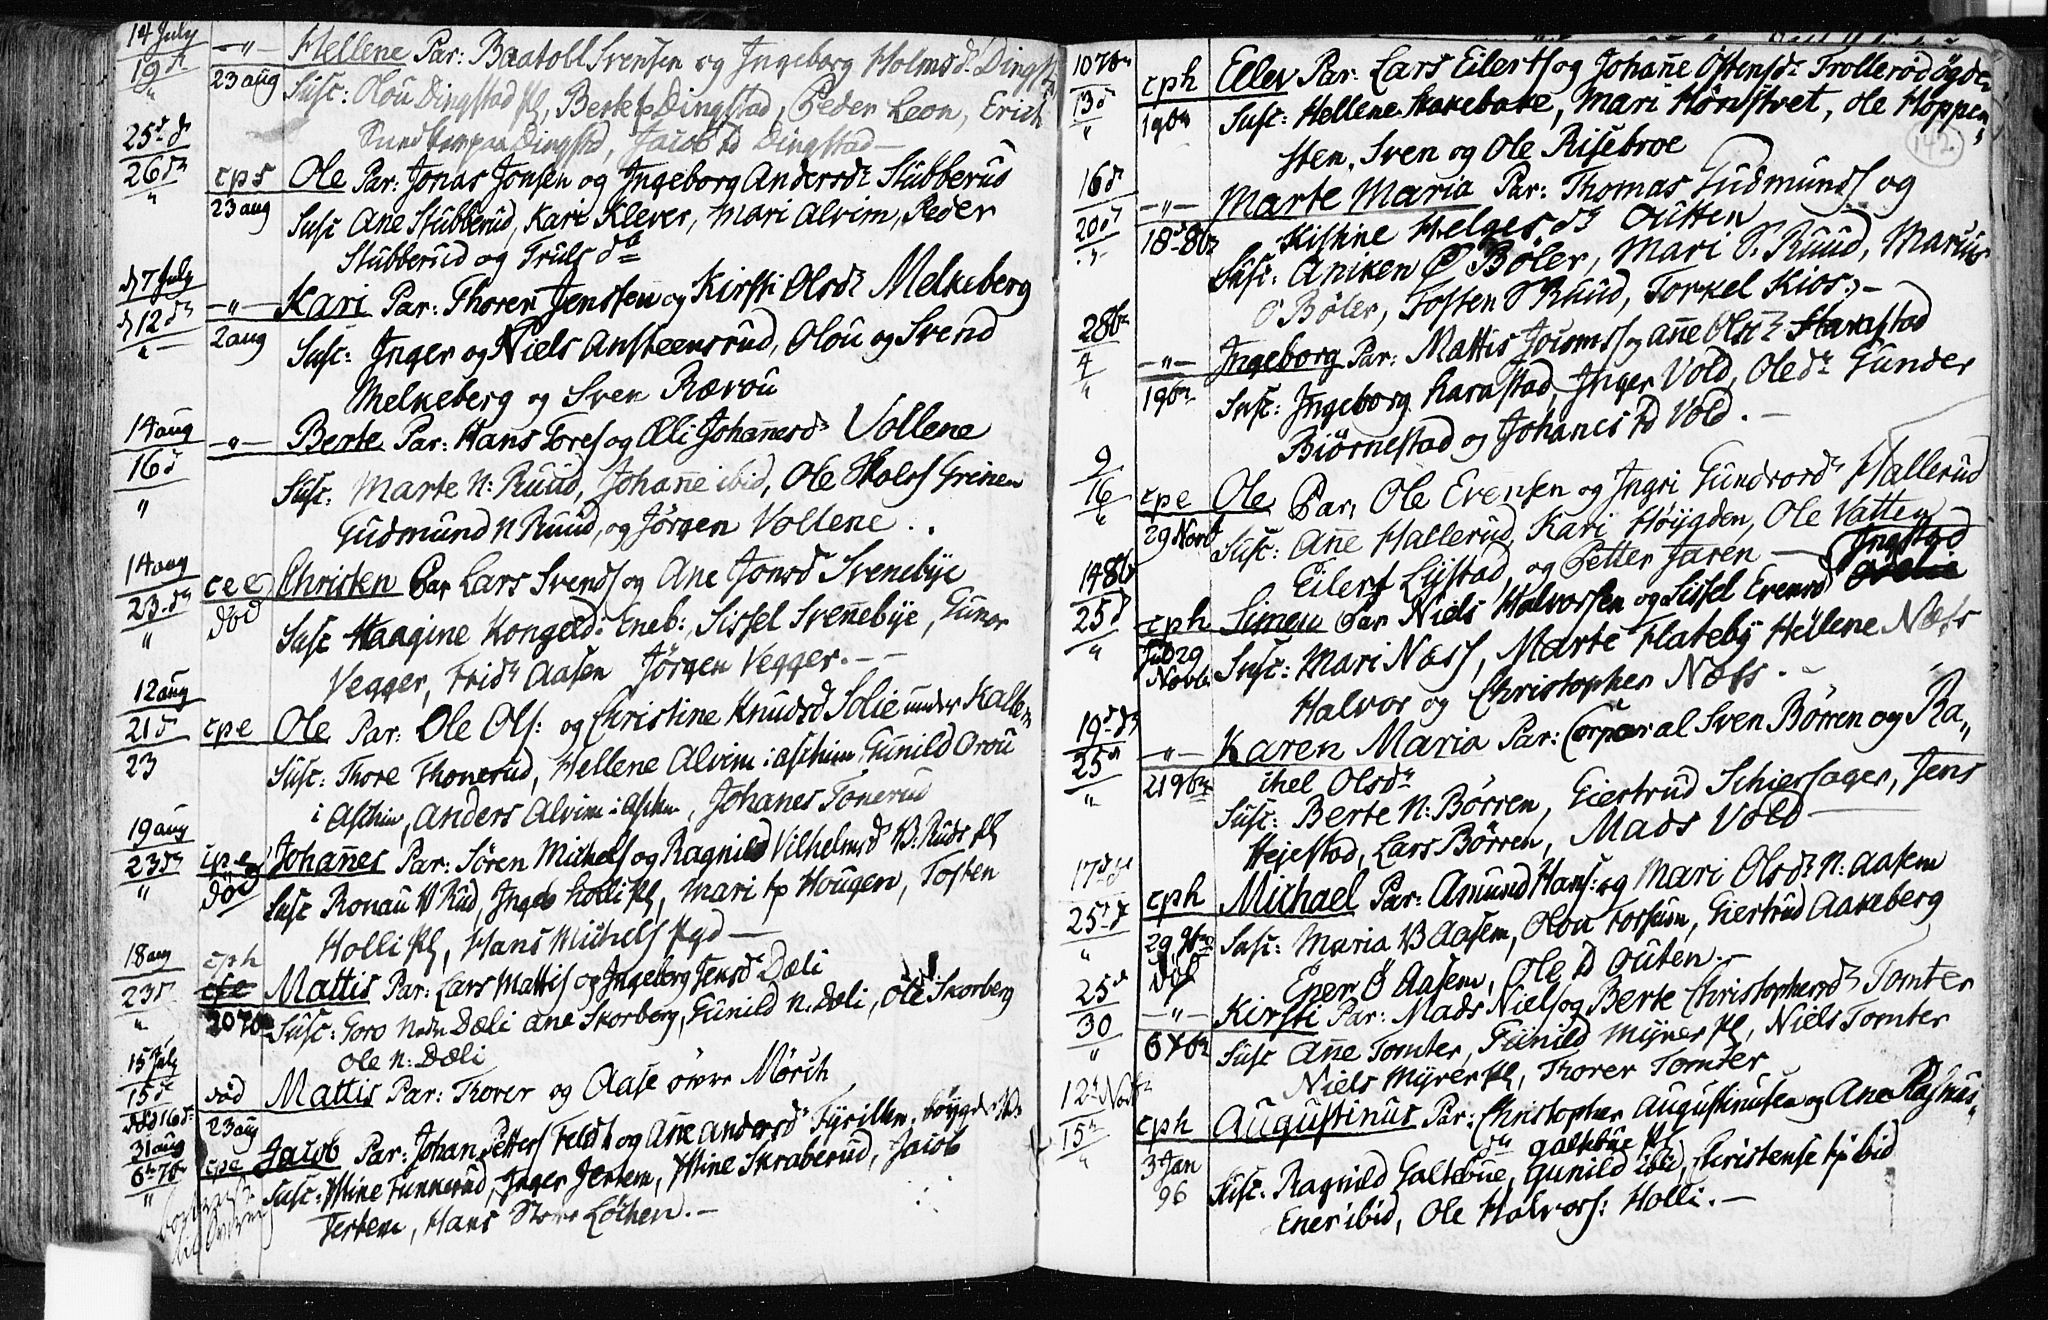 14 July
19 d
"
—"— Hellene Par: Baatoll Svensen og Ingeborg Holmsdr Dingst
23 aug Susc: Olou Dingstad pl, Berte Dingstad, Peder Leon, Erich
Dingstad, Jacob Dingstad —
25 d
26 d
"
cps Ole Par: Jonas Jonsen og Ingeborg Andersdr Stubberud
23 aug Susc Ane Stubberud, Kari Klever, Mari Alvim, Peder
Stubberud og Truls do
d 7 July
d 12 d
"
—"— Kari Par: Thorer Jenssen og Kirsti Olsdr Melkeberg
2 aug Susc: Inger og Niels Ansteensrud, Olou og Svend
Melkeberg og Sven Rævou
14 aug
16 d
"
—"— Berte Par: Hans Tores og Eli Johannesdr Vollene
Susc: Marte N: Ruud, Johanne ibid, Ole Grinen
Gudmund N Ruud, og Jörgen Vollene.
14 aug
23 dn
"
cee Christen Par Lars Svends og Ane Jonsd Svenebÿe
död Susc Haagine Eneb:, Sissel Svennebÿe, Gunor
Vegger, Fridr Aasen Jörgen Vegger. —
12 aug
21 d
23
cpe Ole Par: Ole Ols: og Christine Knudsd Solie under Kallem
Susc: Thore Thonerud, Hellene Alvim i aschim, Gunild Orou
i Aschim, Anders Alvim i Aschm, Johanes Tonerud
19 aug
23 dn
"
cpe Johannes Par: Sören Michels og Ragnild Vilhelmsd V: Ruds pl
död Susc Ronau V Rud, Ingeb Holli pl, Mari tp Hougen, Tosten
Holli pl, Hans Michels —
18 aug
23 d
"
cph
Mattis Par: Lars Mattis og Ingeborg Jensd Dæli
Susc: Goro Dæli ane Skorberg, Gunild N: Dæli, Ole Skorberg
Ole N: Dæli
15 July
15 d
död 16 d
död Mattis Par: Thorer og Aase övre Mörch
23 aug
31 aug
6 7br
"
cpe Jacob Par: Johan Petters Feldt og Ane Andersd Fÿrillen
Susc: Stine Funnerud, Inger Jertem, Stine Skraberud, Jacob
Jertem, Hans Store Löken. —
10 7br
13 d
"
cph Eller Par: Lars Eilerts og Johanne Östensdr Trolleröd
19 8br Susc: Hellene Skakebake, Mari Hörnstvet, Ole Hoppen
sten, Sven og Ole Risebroe
142.
16 d
20 d
—"— Marte Maria Par: Thomas Gudmunds og
Kistine Helgesdr Outten
18 d 8br Susc: Aniken Ö Böler, Mari S. Ruud, Marius
Ö Böler, Tosten S Ruud, Torkel Kios. —
28br
4
"
—"— Ingeborg Par: Mattis og ane Olsdr Harastad
1 9br Susc: Ingeborg Harastad, Inger Vold, Ole dr Gunder
Biörnestad og Johanes td Vold. —
9
16
"
cpe Ole Par, Ole Evensen og Ingri Gundrord Hallerud
29 Novb Susc: Ane Hallerud, Kari Höÿgden, Ole Vatten
Eilert Lÿstad, og Petter Jaren — Ingstad
14 8br
25 d
"
cph Simen Par Niels Halvorssen og Sissel Evensd
29 Novbr Susc: Mari Næss, Marte Flatebÿ Hellene Næss
Halvor og Christopher Næss.
19 d
25 d
"
—"— Karen Maria Par: Corporal Sven Börren og Ra„
ihel Olsdr
21 9br Susc: Berte N: Börren, Giertrud Schiersager, Jens
Hejestad, Lars Börren, Mads Vold —
17 d
25 d
"
cph Michael Par: Amund Hans: og Mari Olsdr N: Aasem
29 9br Susc: Maria V Aasem, Olou Forsum, Giertrud Aakeberg
död Ener Ö Aasem, Ole td Outen. —
25 d
30
"
—"— Kirsti Par: Mads Niels og Berte Christophersdr Tomter
6 Xbr Susc Ane Tomter, Gunild Mÿrer pl, Niels Tomter
Niels Mÿrer pl, Thorer Tomter
12 Novbr
15
"
cph Augustinus Par: Christopher Augustinusen og Ane Rasmus„
dr Galtebÿe pl
3 Jan
96 Susc: Ragnild Galtebÿe, Gunild ibid, Christense tp ibid
Ener ibid, Ole Halvors: Holli. —